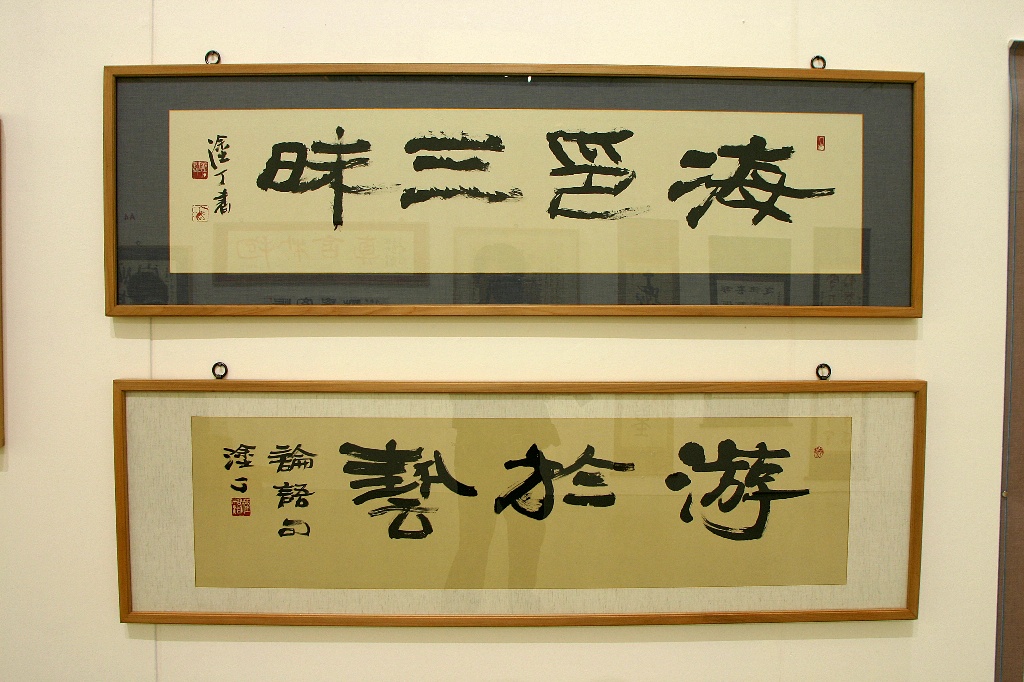 海印三昧
塗丁書
游於藝
論語句
塗丁